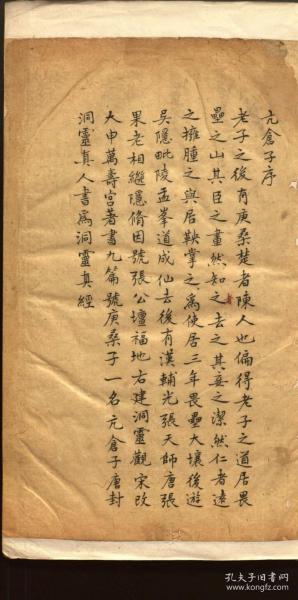 亢倉子序
老子之後有庚桑楚者陳人也偏得老子之道居畏
壘之山其臣之畫然知之去之其妾之潔然仁者遠
之擁腫之與居鞅掌之為使居三年畏壘大壤後遊
吳隱毗陵孟峯道成仙去後有漢輔光張天師唐張
果老相繼隱脩因號張公壇福地右建洞靈觀宋改
大申萬壽宮著書九篇號庚桑子一名亢倉子唐封
洞靈真人書爲洞靈真經
孔夫子旧书网